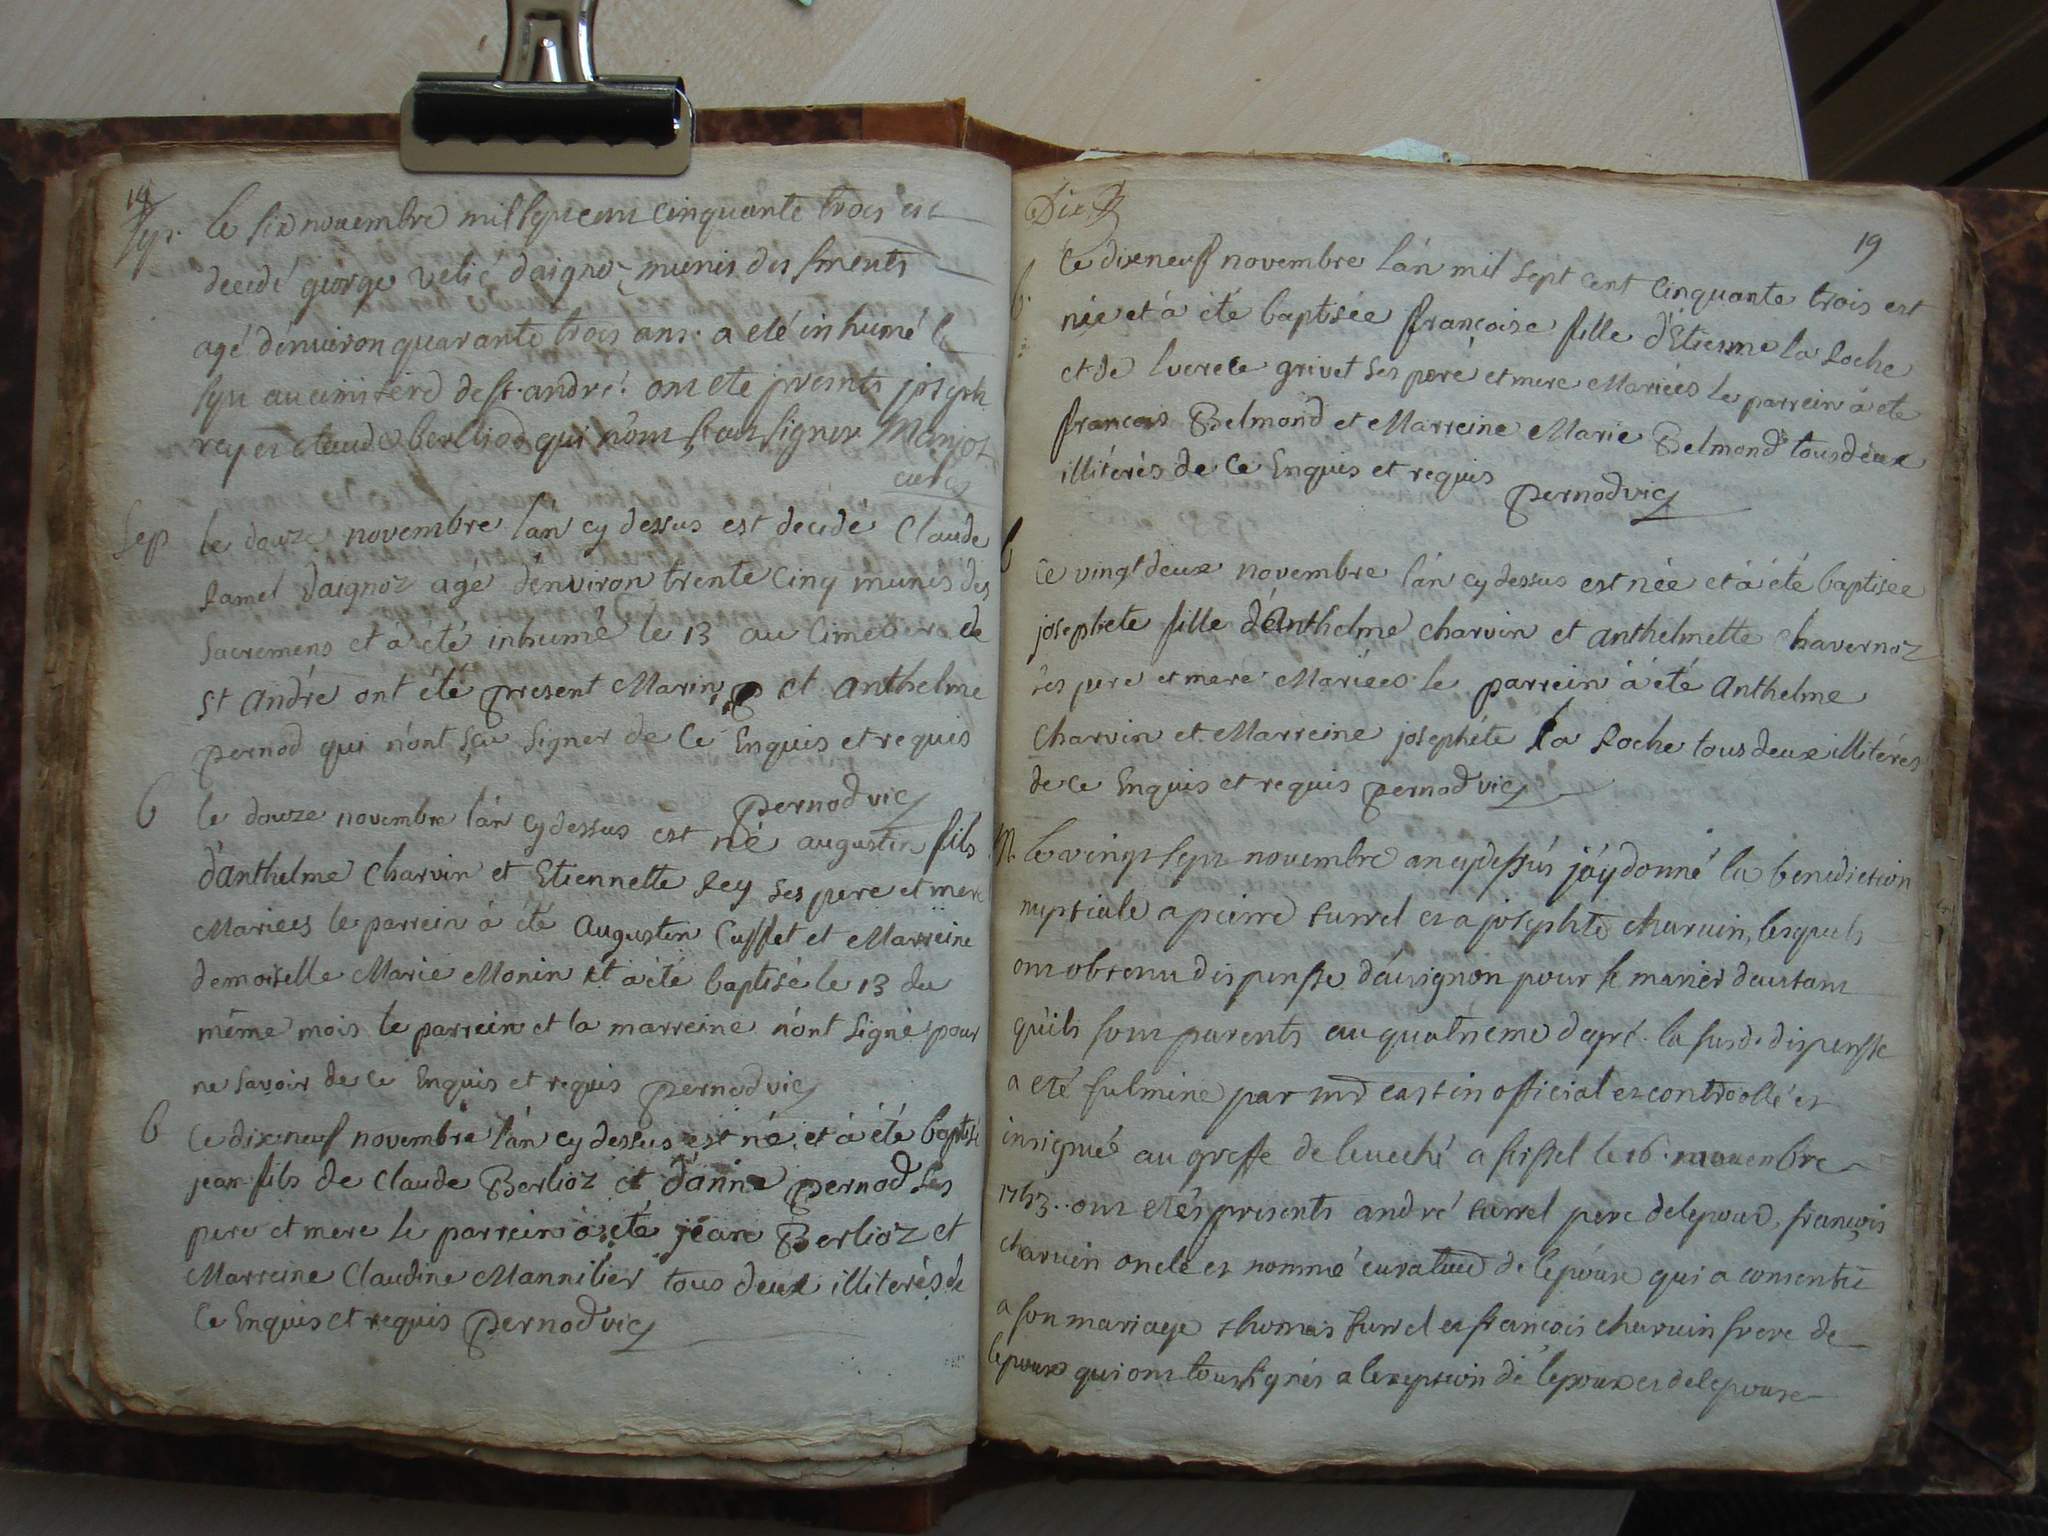 18
Sep. le six novembre mil sept cent cinquante trois est
decedé george velié daignoz munis des sments
agé denviron quarante trois ans. a eté inhumé le
sept au cimitere de st. andré. ont eté presents joseph
rey et claude berlioz qui nont sceu signer Marjoz
curé
Sep le douze novembre l'an cy dessus est decidé Claude
Ramel daignoz agé dénviron trente Cinq munis des
Sacremens et à été inhumé le 13 au Cimetiere de
St André ont été present Marin et Anthelme
pernod qui n'ont sçu Signer de Ce Enquis et requis
pernod vic
b le douze novembre l'an cy dessus est né augustin fils
d'anthelme Charvin et Etiennette Rey ses pere et mere
Mariées le parrein à été Augustin Cuffet et Marreine
demoiselle Marie Monin et à été baptisé le 13 du
même mois le parrein et la marreine n'ont Signé pour
ne Savoir de Ce Enquis et requis pernod vic
b Ce dixneuf novembre l'an cy dessus est né et à été baptisé
jean fils de Claude Berlioz et d'anne pernod Ses
pere et mere le parrein à été jean Berlioz et
Marreine Claudine Mannilier tous deux illiterés de
Ce Enquis et requis pernod vic
19
b. Ce dixneuf novembre l'an mil sept cent Cinquante trois est
née et à été baptisée françoise fille d'Etienne la Roche
et de lucrece grivet ses pere et mere Mariées le parrein à été
françois Belmond et Marreine Marie Belmond tous deux
illiterés de Ce Enquis et requis pernod vic
b Ce vingt deux novembre l'an cy dessus est née et à été baptisée
josephete fille d'Anthelme charvin et anthelmette Chavernoz
ses pere et mere Mariées le parrein à été Anthelme
Charvin et Marreine josephéte la Roche tous deux illitérés
de Ce Enquis et requis pernod vic
M. le vingt sept novembre an cy dessus j'ay donné la benediction
nuptiale a pierre surrel et a josephte charvin, lesquels
ont obtenu dispensse d'avignon pour se marier d'autant
qu'ils sont parents au quatrieme degré. la susd. dispensse
a eté fulmine par mr castin official et controollé et
insignué au greffe de leveché a seissel le 16. novembre
1753.. ont etés presents andré surrel pere de lepoux, françois
charvin oncle et nommé curateur de lepouse qui a consentit
a son mariage thomas surrel et françois charvin frere de
lepouse qui ont tous signés a lexeption de lepoux et de lepouse